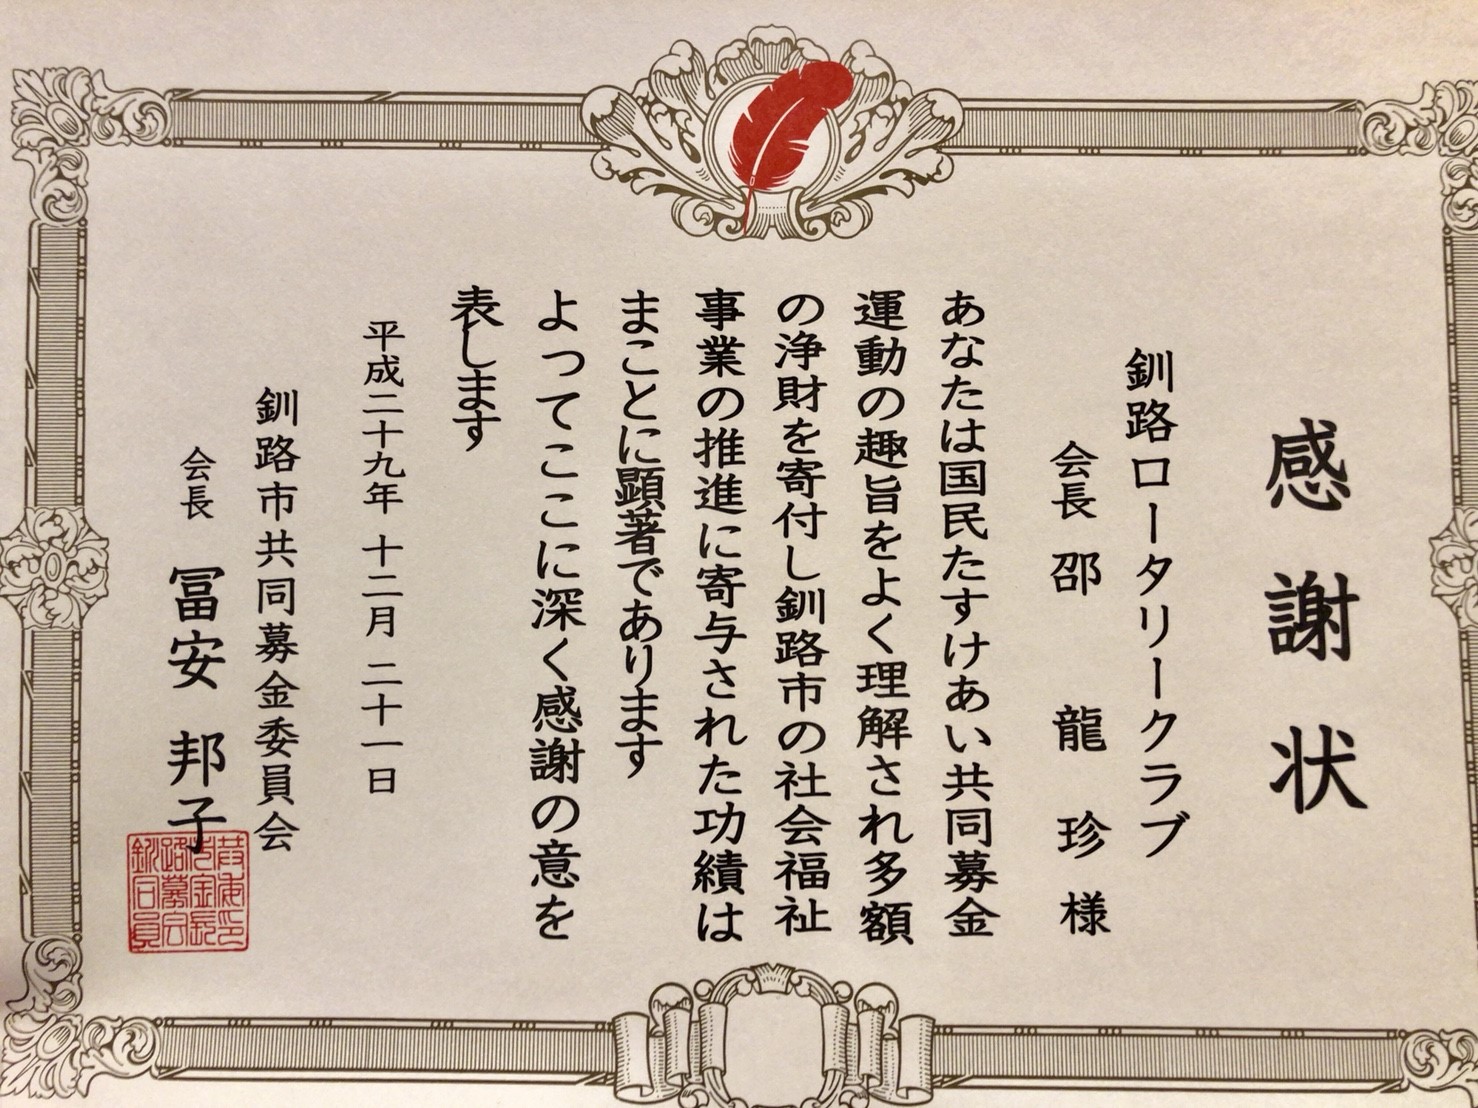 感謝状
釧路ロータリークラブ
会長 邵 龍珍 様
あなたは国民たすけあい共同募金
運動の趣旨をよく理解され多額
の浄財を寄付し釧路市の社会福祉
事業の推進に寄与された功績は
まことに顕著であります
よってここに深く感謝の意を
表します
平成二十九年 十二月 二十一日
釧路市共同募金委員会
会長 冨安 邦子